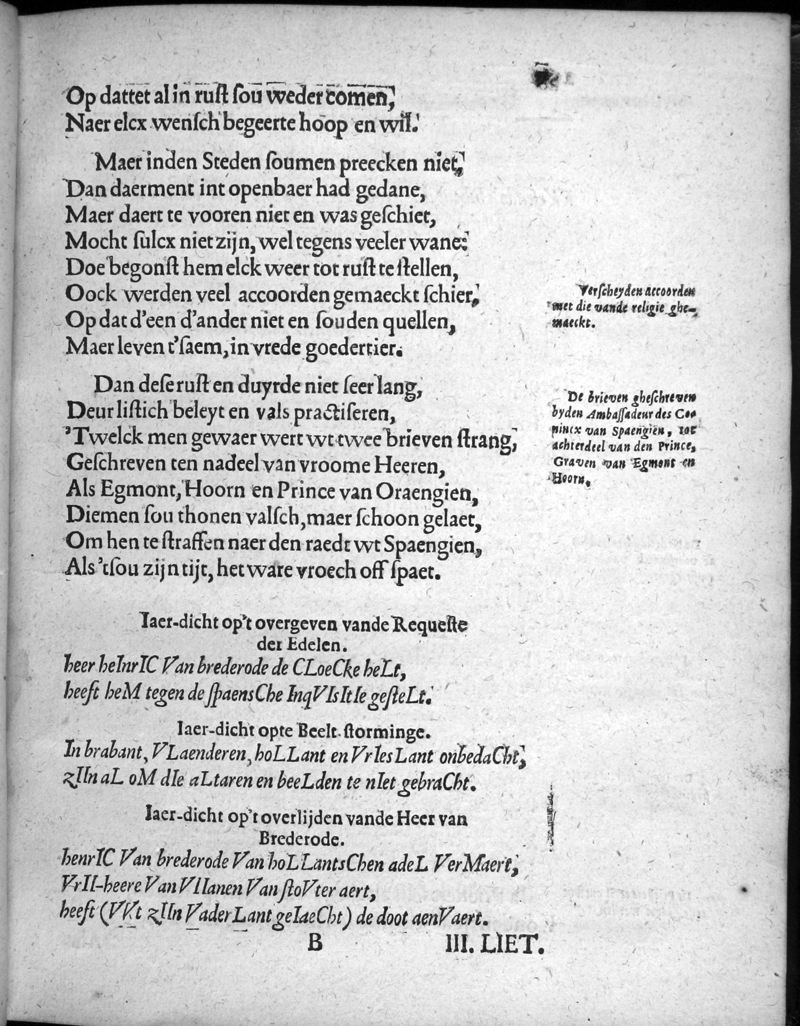 Op dattet al in rust sou weder comen,
Naer elcx wensch begeerte hoop en wil.
Maer inden Steden soumen preecken niet,
Dan daerment int openbaer had gedane,
Maer daert te vooren niet en was geschiet,
Mocht sulcx niet zijn, wel tegens veeler wane:
Doe begonst hem elck weer tot rust te stellen,
Oock werden veel accoorden gemaeckt schier,
Op dat d'een d'ander niet en souden quellen,
Maer leven t'saem, in vrede goedertier.
Verscheyden accoorden
met die vande religie ghe-
maeckt.
Dan dese rust en duyrde niet seer lang,
Deur listich beleyt en vals practiseren,
'Twelck men gewaer wert wt twee brieven strang,
Geschreven ten nadeel van vroome Heeren,
Als Egmont, Hoorn en Prince van Oraengien,
Diemen sou thonen valsch, maer schoon gelaet,
Om hen te straffen naer den raedt wt Spaengien,
Als 'tsou zijn tijt, het ware vroech off spaet.
De brieven gheschreven
byden Ambassadeur des Co-
nincx van Spaengien, tot
achterdeel van den Prince,
Graven van Egmont en
Hoorn.
Iaer-dicht op't overgeven vande Requeste
der Edelen.
heer heInrIC Van brederode de CLoeCke heLt,
heeft heM tegen de spaensChe InqVIsItIe gesteLt.
Iaer-dicht opte Beelt-storminge.
In brabant, VLaenderen, hoLLant en VrIesLant onbedaCht,
zIIn aL oM dIe aLtaren en beeLden te nIet gebraCht.
Iaer-dicht op't overlijden vande Heer van
Brederode.
henrIC Van brederode Van hoLLantsChen adeL VerMaert,
VrII-heere Van VIIanen Van stoVter aert,
heeft (VVt zIIn VaderLant geIaeCht) de doot aenVaert.
B III. LIET.